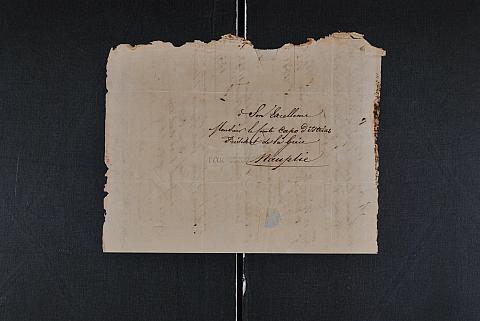 à Son Excellence
Monsieur le Comte Capo d'Istrias
Président de la Grèce
Nauplie